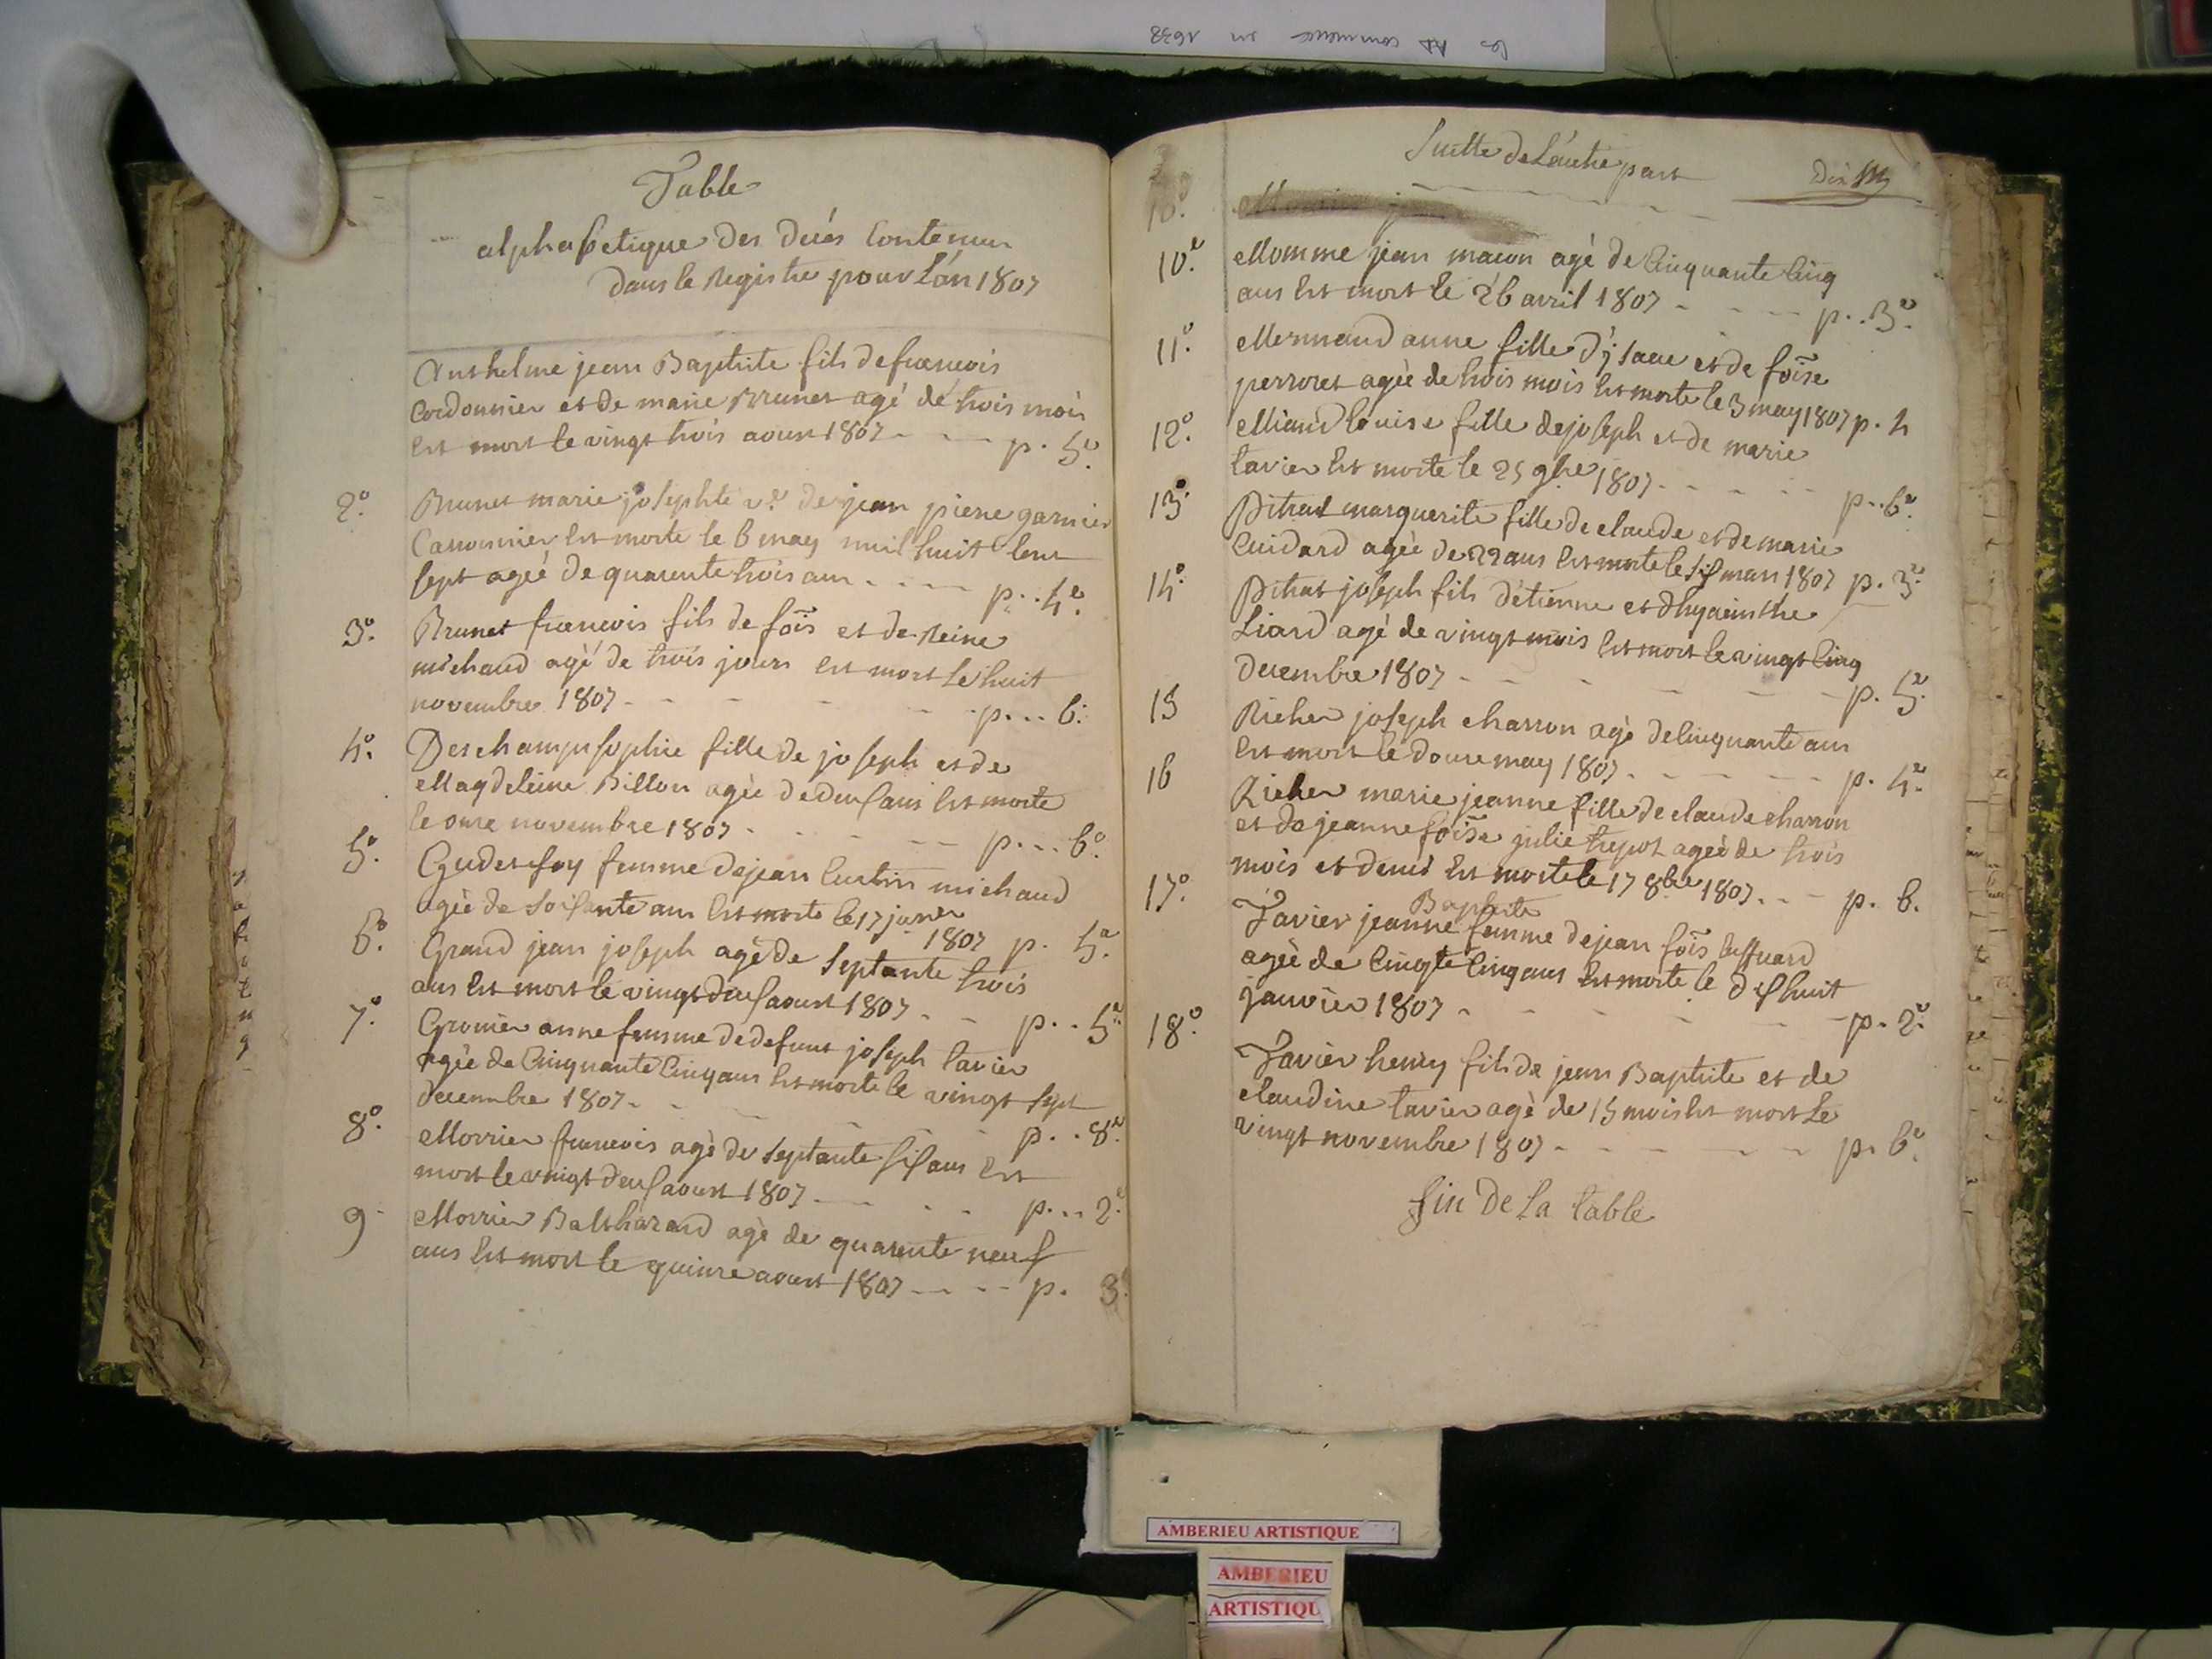 les commence en 1638
Table
alphabetique des décés Contenus
dans le Registre pour L'an 1807
Anthelme jean Baptiste fils de francois
Cordonnier et de marie Brunet agé de trois mois
Est mort le vingt trois aoust 1807 - - - p. 5e.
2o. Brunet marie josephte ve. de jean piere garnier
Est morte le 6 may mil huit Cent
sept ageé de quarente trois ans - - - - p. . 4e.
3o. Brunet francois fils de fois et de Reine
michaud agé de trois jours est mort Le huit
novembre 1807 - - - - - p. . . . 6.
4o. Deschamps sophie fille de joseph et de
Magdeleine Billon ageé de deux ans Est morte
le onze novembre 1807 - - - - p. . . . 6o.
5o. femme de jean michaud
ageé de Soixante ans Est morte le 17 janer
1807 p. 5e.
6o. Grand jean joseph agé de Septante trois
ans Est mort le vingt deux aoust 1807 - - p. . 5e.
7o. anne femme de defunt joseph tavier
ageé de Cinquante Cinq ans Est morte le vingt sept
decembre 1807 - - - - - p. . 8e.
8o. Morrier francois agé de Septante six ans Est
mort le vingt deux aoust 1807 - - - - p. . . 2e.
9 Morrier Balthazard agé de quarente neuf
ans Est mort le quinze aoust 1807 - - - - p. 3
Suitte de L'autre part
Dix
10o.
10e. Momme jean macon agé de Cinquante Cinq
ans Est mort le 26 avril 1807 - - - - p. . 3e.
11o. Mermand anne fille d'jsaac et de foise
perroret ageé de trois mois Est morte le 3 may 1807 p. 4
12o. Miand louise fille de joseph et de marie
tavier Est morte le 25 9bre 1807 - - - - - p. . 6e.
13o. Pitrat marguerite fille de claude et de marie
Cuidard ageé de 22 ans Est morte le six mars 1807 p. 3e.
14o. Pitrat joseph fils d'étienne et d'hyacinthe
Liard agé de vingt mois Est mort le vingt Cinq
decembre 1807 - - - - - - p. 5e.
15 Richer joseph charron agé de Cinquante ans
Est mort le douze may 1807 - - - - - p. 4e.
16 Richer marie jeanne fille de claude charron
et de jeanne foise julie trepot ageé de trois
mois et demi Est morte le 17 8bre 1807 - - - p. 6.
Baptiste
17o. Tavier jeanne femme de jean fois buffuard
ageé de Cinqte Cinq ans Est morte le dixhuit
janvier 1807 - - - - - - p. 2e.
18o. Tavier henry fils de jean Baptiste et de
claudine tavier agé de 15 mois Est mort Le
vingt novembre 1807 - - - - - p. 6e.
fin de la table
AMBERIEU ARTISTIQUE
AMBERIEU
ARTISTIQU